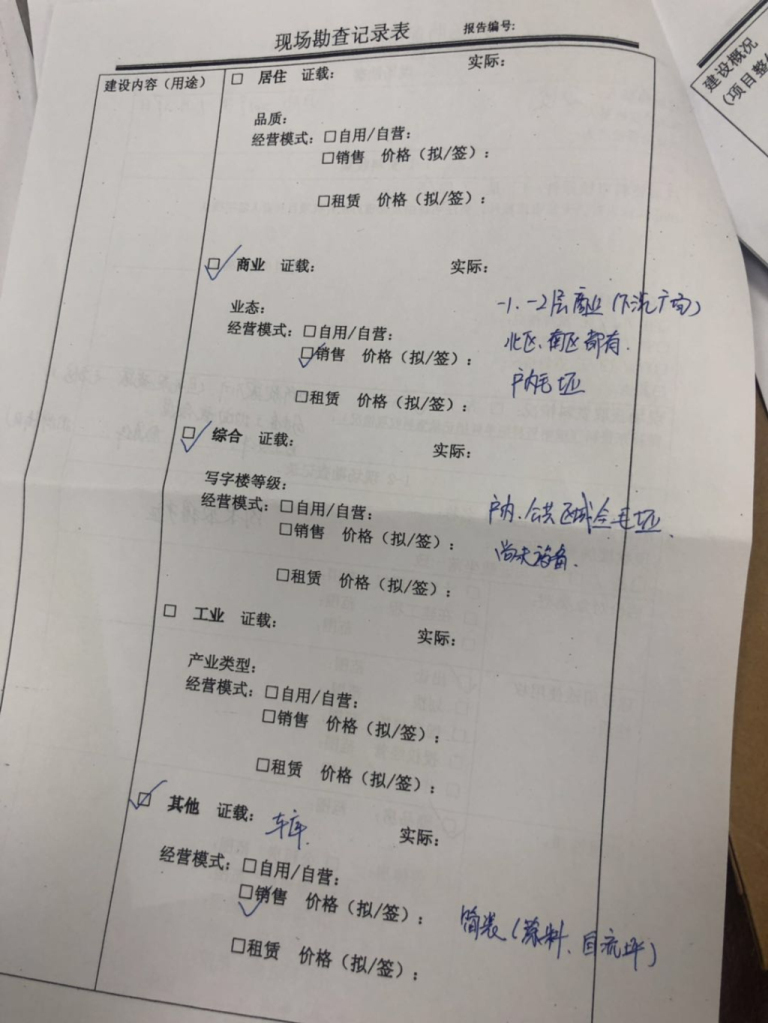 现场勘查记录表 报告编号:
建设内容（用途）
□ 居住 证载： 实际：
品质：
经营模式：□自用/自营：
□销售 价格（拟/签）：
□租赁 价格（拟/签）：
☑ 商业 证载： 实际：
业态： -1、-2层商业（下沉广场）
经营模式：□自用/自营： 北区、南区都有.
☑销售 价格（拟/签）： 户内毛坯
□租赁 价格（拟/签）：
☑ 综合 证载： 实际：
写字楼等级：
经营模式：□自用/自营： 户内、公共区域全毛坯、
□销售 价格（拟/签）： 尚未设备.
□租赁 价格（拟/签）：
□ 工业 证载： 实际：
产业类型：
经营模式：□自用/自营：
□销售 价格（拟/签）：
□租赁 价格（拟/签）：
☑ 其他 证载：车库 实际：
经营模式：□自用/自营：
☑销售 价格（拟/签）： 简装（涂料、自流坪）
□租赁 价格（拟/签）：
建设概况
（项目整